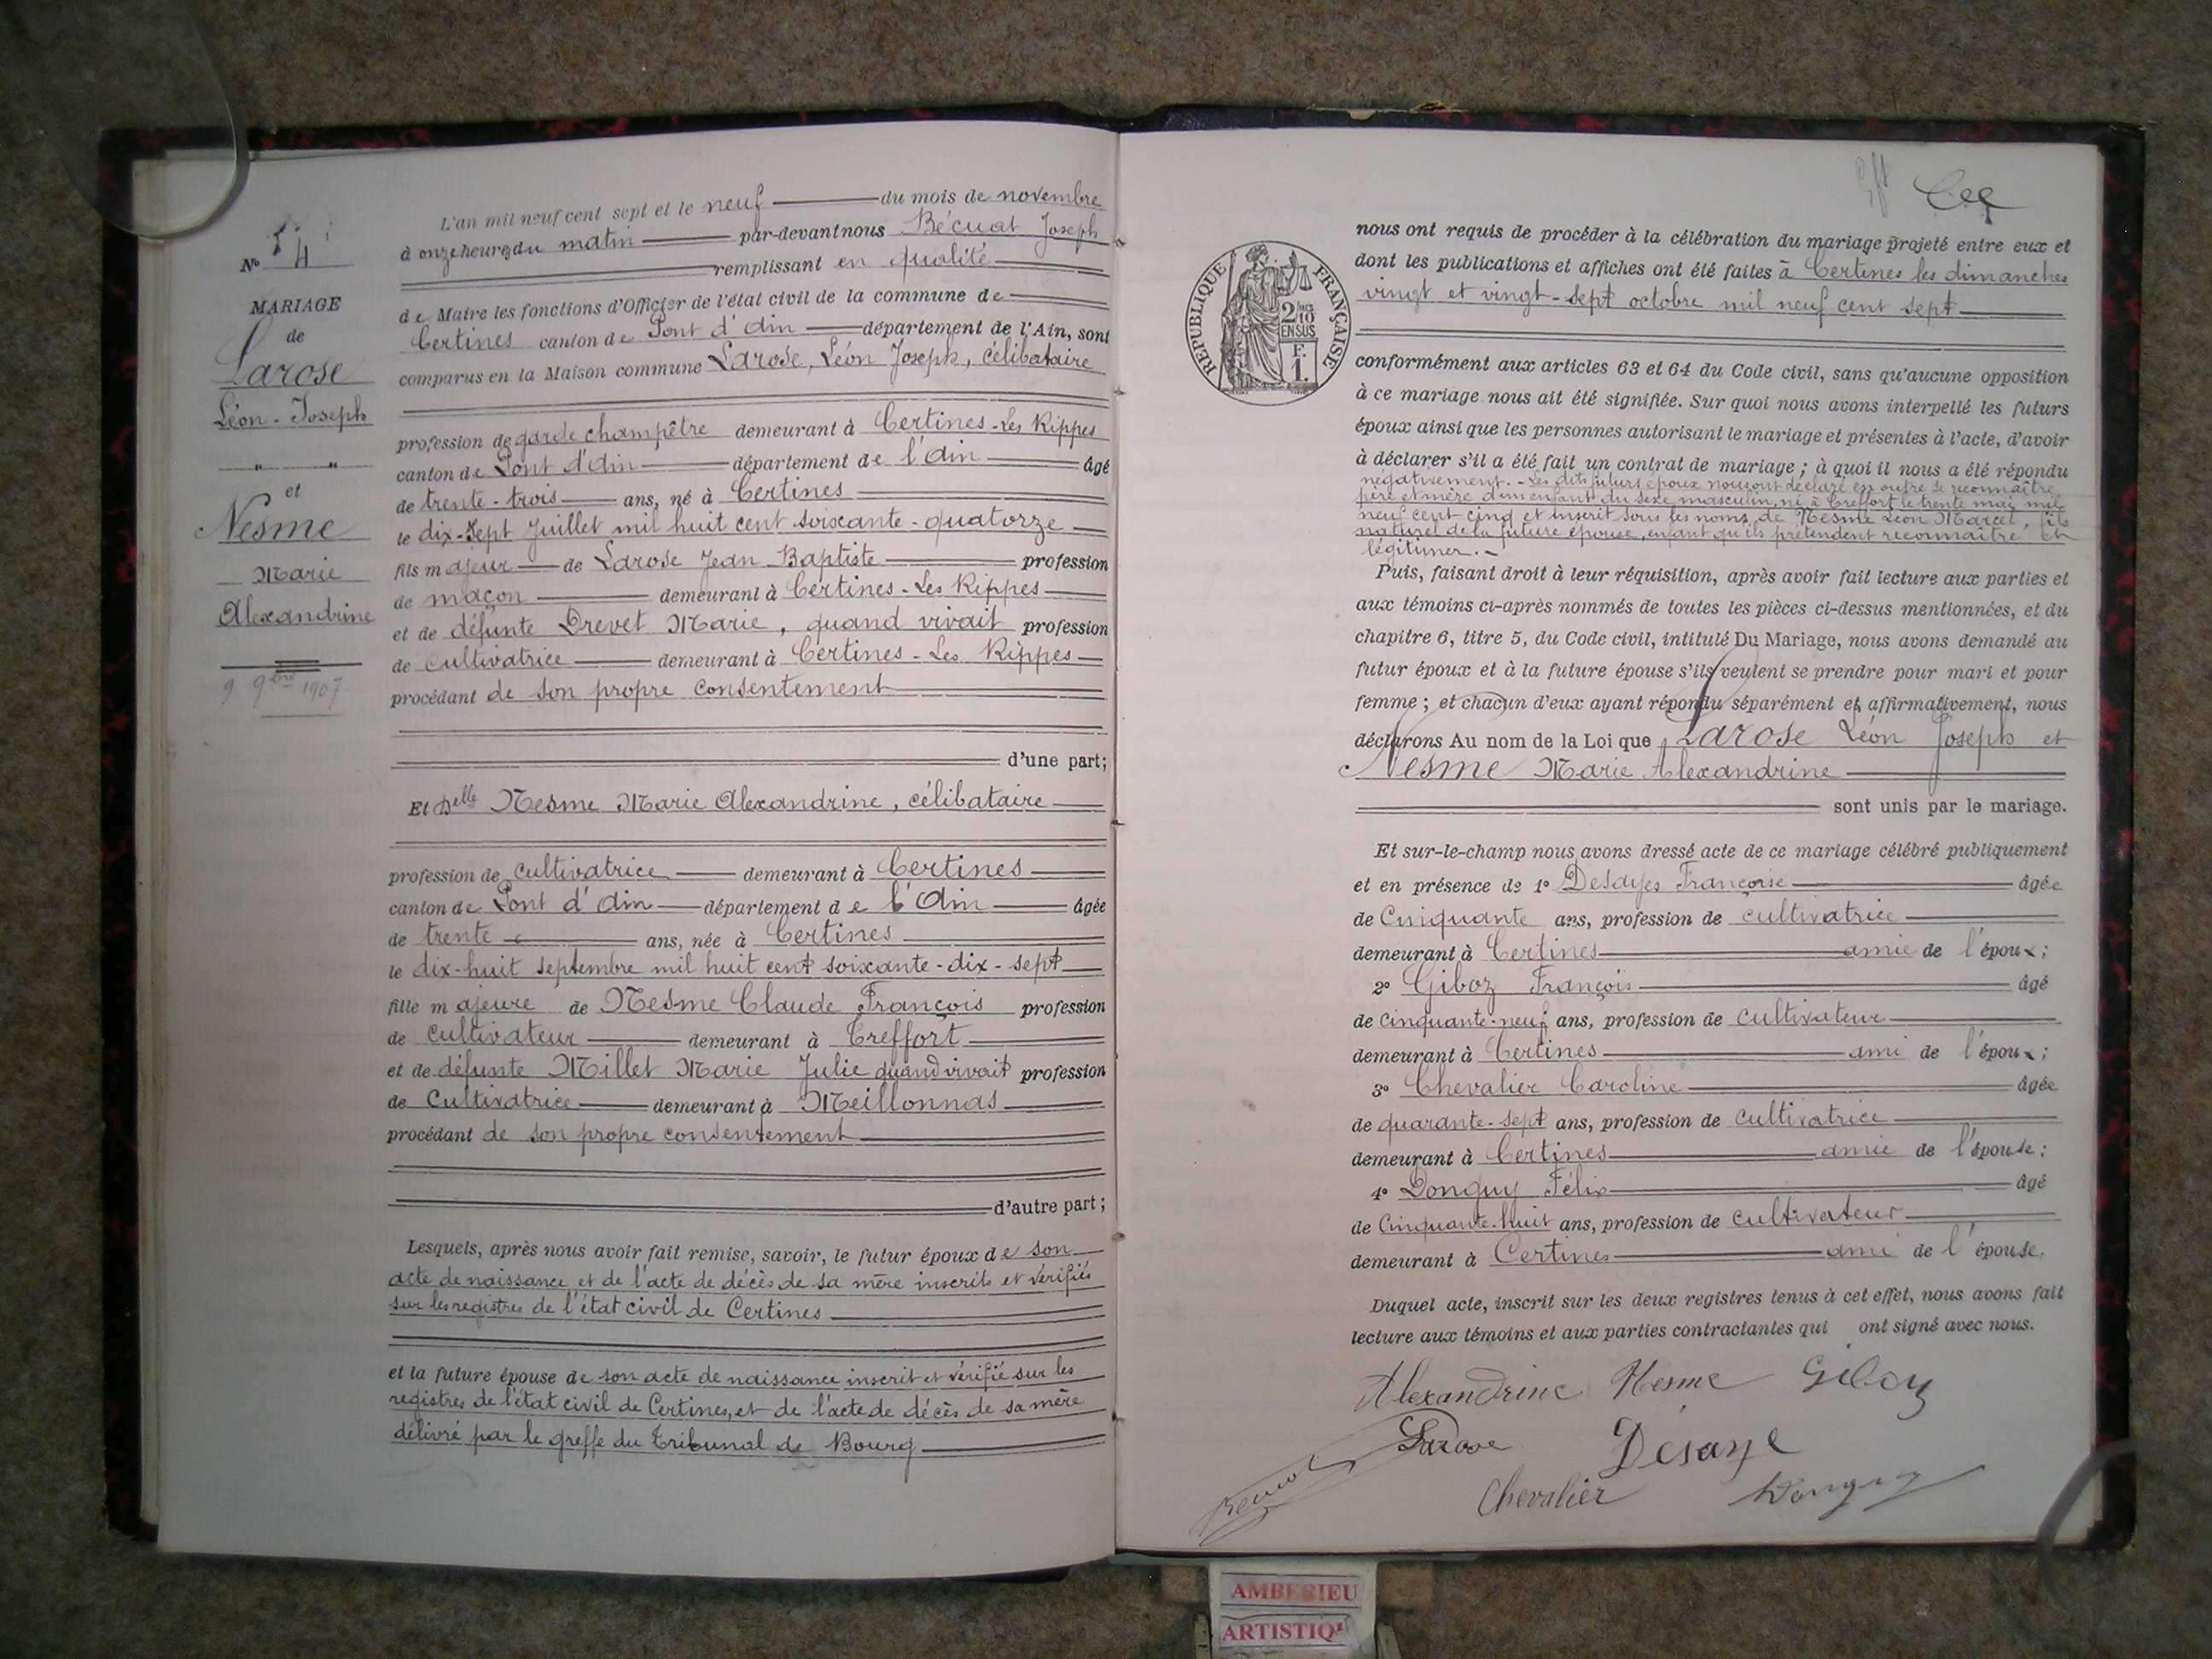 N° 4
MARIAGE
de
Larose
Léon-Joseph
" "
et
Nesme
Marie
Alexandrine
9 9bre 1907.
L'an mil neuf cent sept et le neuf du mois de novembre
à onze heures du matin par-devant nous Bécuat Joseph
remplissant en qualité
de Maire les fonctions d'Officier de l'état civil de la commune de
Certines canton de Pont d'Ain département de l'Ain, sont
comparus en la Maison commune Larose, Léon Joseph, célibataire
profession de garde champêtre demeurant à Certines-Les Rippes
canton de Pont d'Ain département de l'Ain âgé
de trente-trois ans, né à Certines
le dix-sept Juillet mil huit cent soixante-quatorze
fils majeur de Larose Jean Baptiste profession
de maçon demeurant à Certines-Les Rippes
et de défunte Drevet Marie, quand vivait profession
de cultivatrice demeurant à Certines-Les Rippes
procédant de son propre consentement
d'une part;
Et Delle Nesme Marie Alexandrine, célibataire
profession de cultivatrice demeurant à Certines
canton de Pont d'Ain département de l'Ain âgée
de trente ans, née à Certines
le dix-huit septembre mil huit cent soixante-dix-sept
fille majeure de Nesme Claude François profession
de cultivateur demeurant à Treffort
et de défunte Millet Marie Julie quand vivait profession
de Cultivatrice demeurant à Meillonnas
procédant de son propre consentement
d'autre part;
Lesquels, après nous avoir fait remise, savoir, le futur époux de son
acte de naissance et de l'acte de décès de sa mère inscrits et vérifiés
sur les registres de l'état civil de Certines
et la future épouse de son acte de naissance inscrit et vérifié sur les
registres de l'état civil de Certines, et de l'acte de décès de sa mère
délivré par le greffe du Tribunal de Bourg
RÉPUBLIQUE FRANÇAISE
2/10 EN SUS
F. 1.
nous ont requis de procéder à la célébration du mariage projeté entre eux et
dont les publications et affiches ont été faites à Certines les dimanches
vingt et vingt-sept octobre mil neuf cent sept
conformément aux articles 63 et 64 du Code civil, sans qu'aucune opposition
à ce mariage nous ait été signifiée. Sur quoi nous avons interpellé les futurs
époux ainsi que les personnes autorisant le mariage et présentes à l'acte, d'avoir
à déclarer s'il a été fait un contrat de mariage; à quoi il nous a été répondu
négativement. - Les dits futurs époux nous ont déclaré en outre se reconnaître
père et mère d'un enfant du sexe masculin, né à Treffort le trente mai mil
neuf cent cinq et inscrit sous les noms de Nesme Léon Marcel, fils
naturel de la future épouse, enfant qu'ils prétendent reconnaître et
légitimer. -
Puis, faisant droit à leur réquisition, après avoir fait lecture aux parties et
aux témoins ci-après nommés de toutes les pièces ci-dessus mentionnées, et du
chapitre 6, titre 5, du Code civil, intitulé Du Mariage, nous avons demandé au
futur époux et à la future épouse s'ils veulent se prendre pour mari et pour
femme; et chacun d'eux ayant répondu séparément et affirmativement, nous
déclarons Au nom de la Loi que Larose Léon Joseph et
Nesme Marie Alexandrine
sont unis par le mariage.
Et sur-le-champ nous avons dressé acte de ce mariage célébré publiquement
et en présence de 1° Desayes Françoise âgée
de Cinquante ans, profession de cultivatrice
demeurant à Certines amie de l'époux;
2° Giboz François âgé
de Cinquante-neuf ans, profession de cultivateur
demeurant à Certines ami de l'époux;
3° Chevalier Caroline âgée
de quarante-sept ans, profession de cultivatrice
demeurant à Certines amie de l'épouse;
4° Donguy Félix âgé
de Cinquante-huit ans, profession de cultivateur
demeurant à Certines ami de l'épouse.
Duquel acte, inscrit sur les deux registres tenus à cet effet, nous avons fait
lecture aux témoins et aux parties contractantes qui ont signé avec nous.
Alexandrine Nesme Giboz
Larose Desaye
Bécuat Chevalier Donguy
AMBERIEU
ARTISTIQ